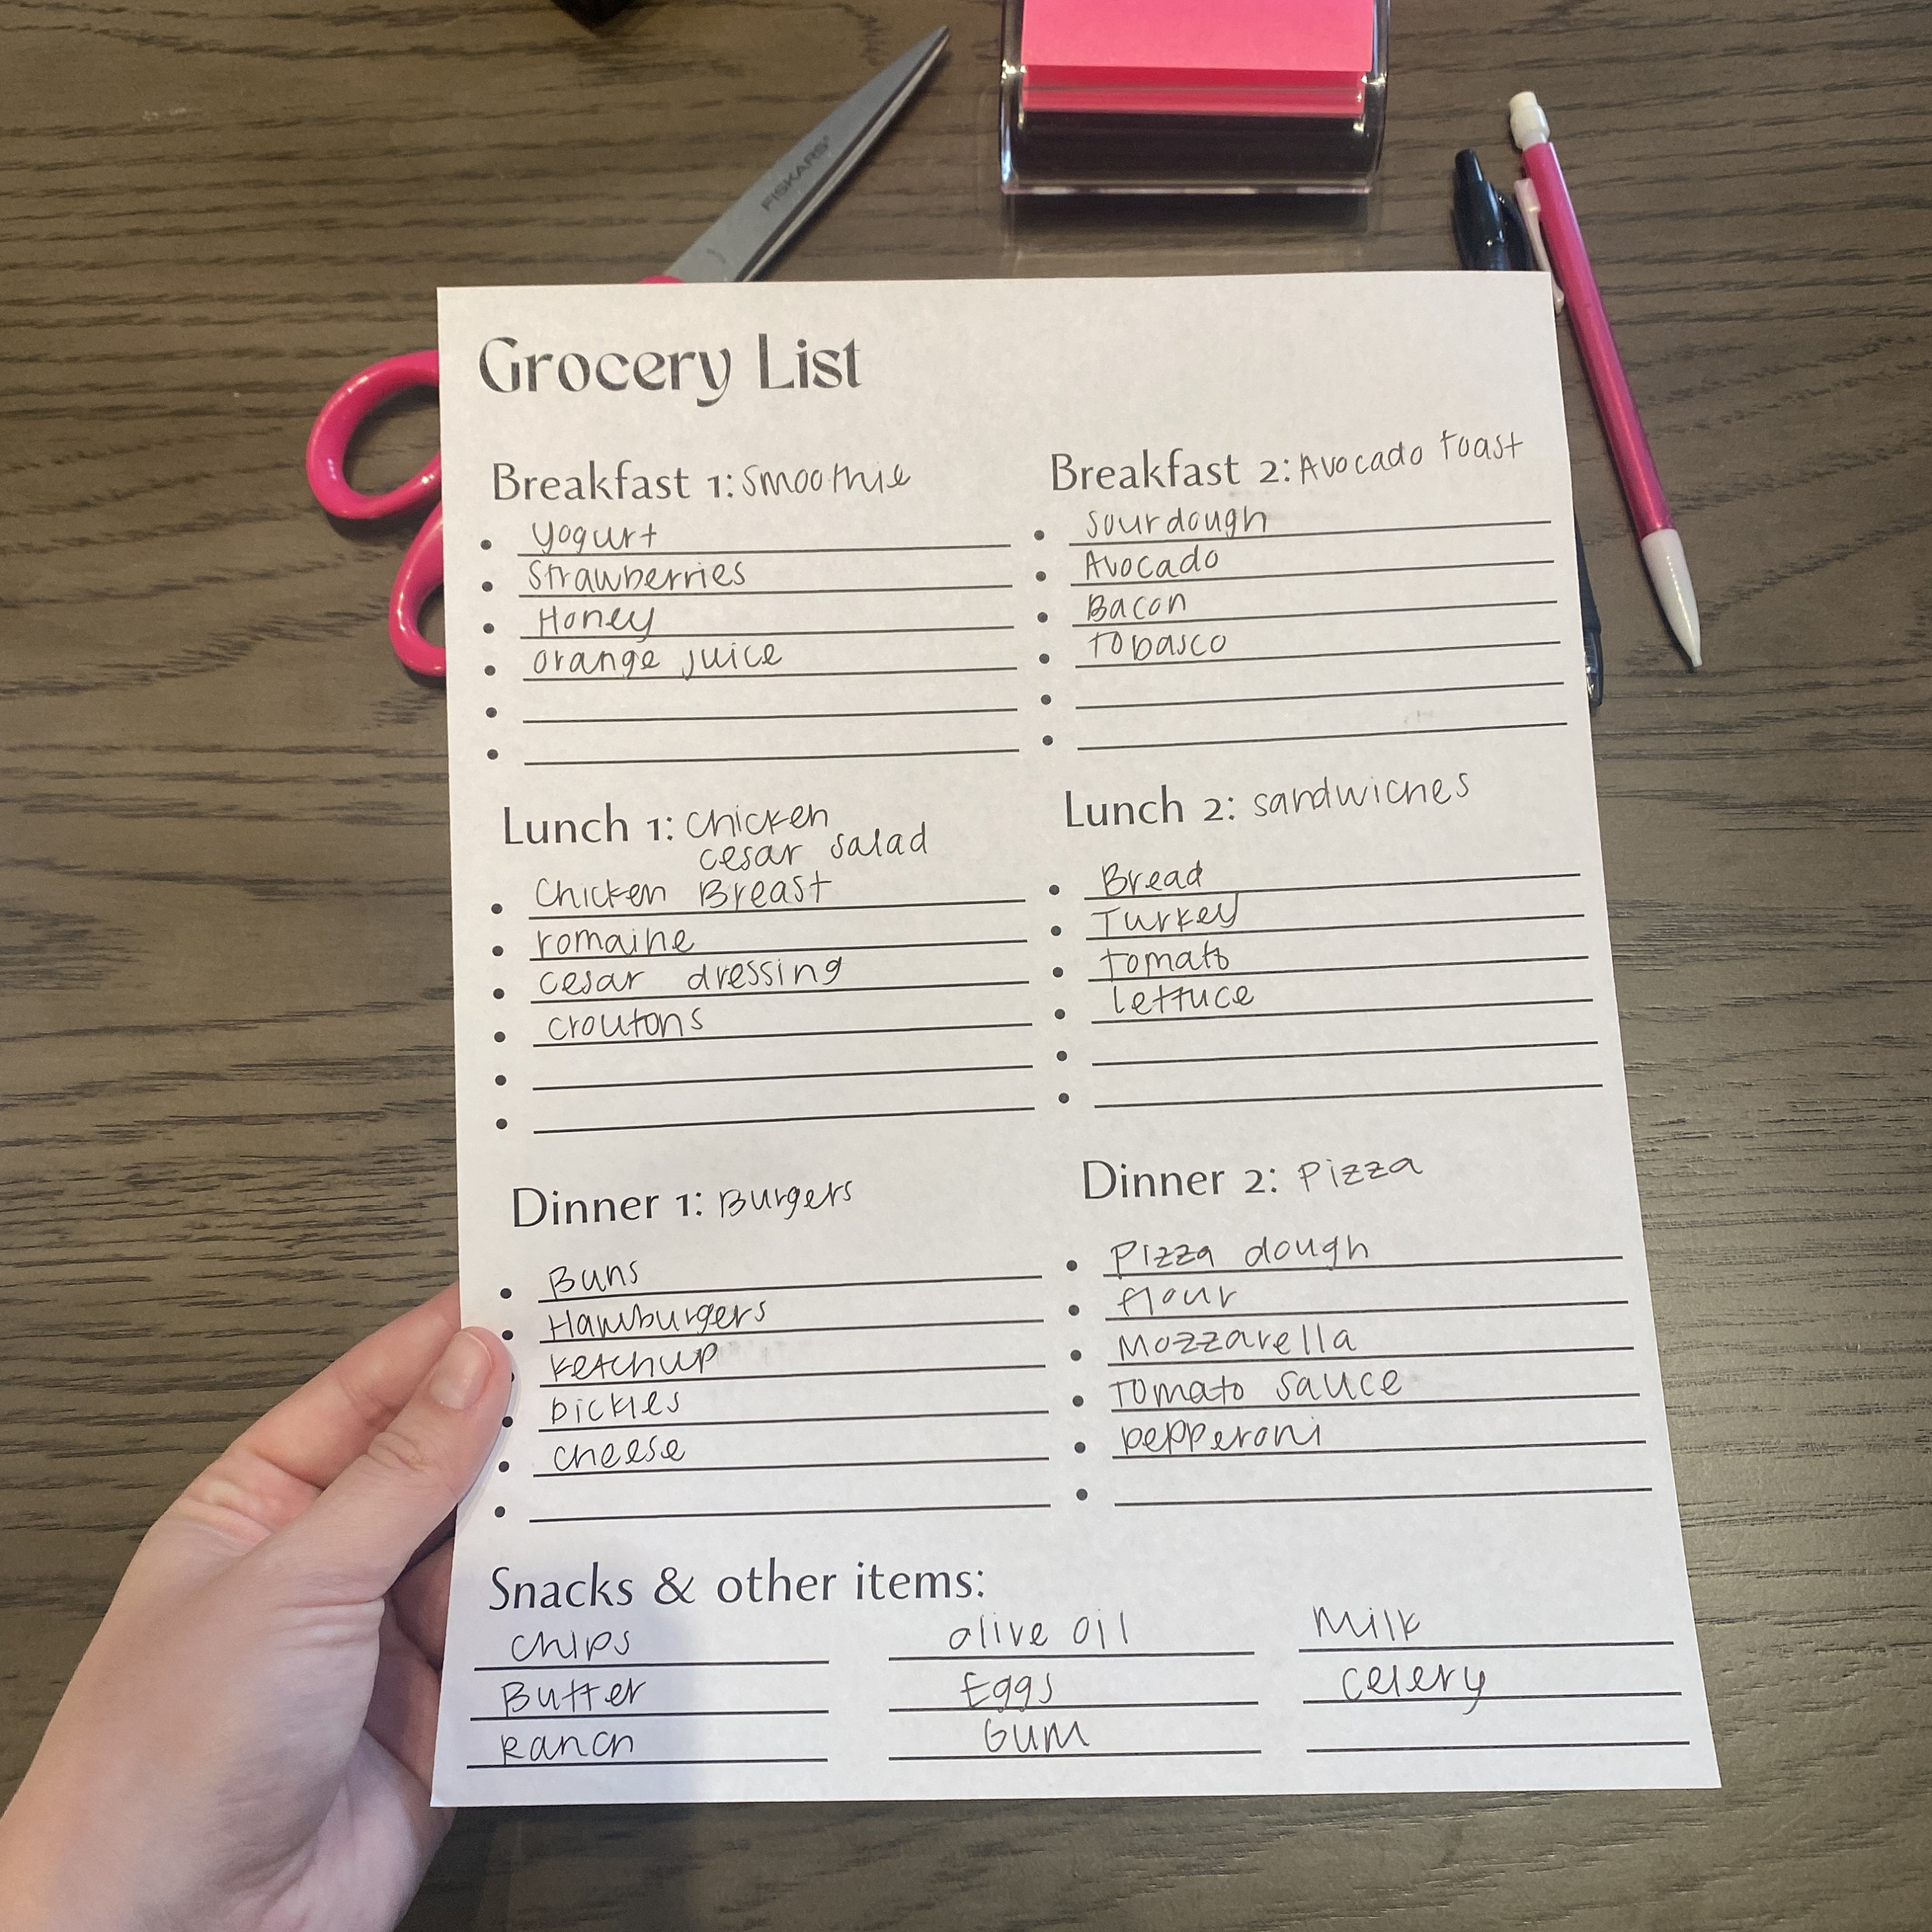 FISKARS®
Grocery List
Breakfast 1: Smoothie
yogurt
Strawberries
Honey
orange juice
Breakfast 2: Avocado toast
sourdough
Avocado
Bacon
Tobasco
Lunch 1: Chicken
cesar salad
Chicken Breast
romaine
cesar dressing
croutons
Lunch 2: sandwiches
Bread
Turkey
tomato
lettuce
Dinner 1: Burgers
Buns
Hamburgers
ketchup
pickles
cheese
Dinner 2: Pizza
Pizza dough
flour
Mozzarella
Tomato sauce
pepperoni
Snacks & other items:
Chips
Butter
Ranch
olive oil
Eggs
Gum
Milk
celery